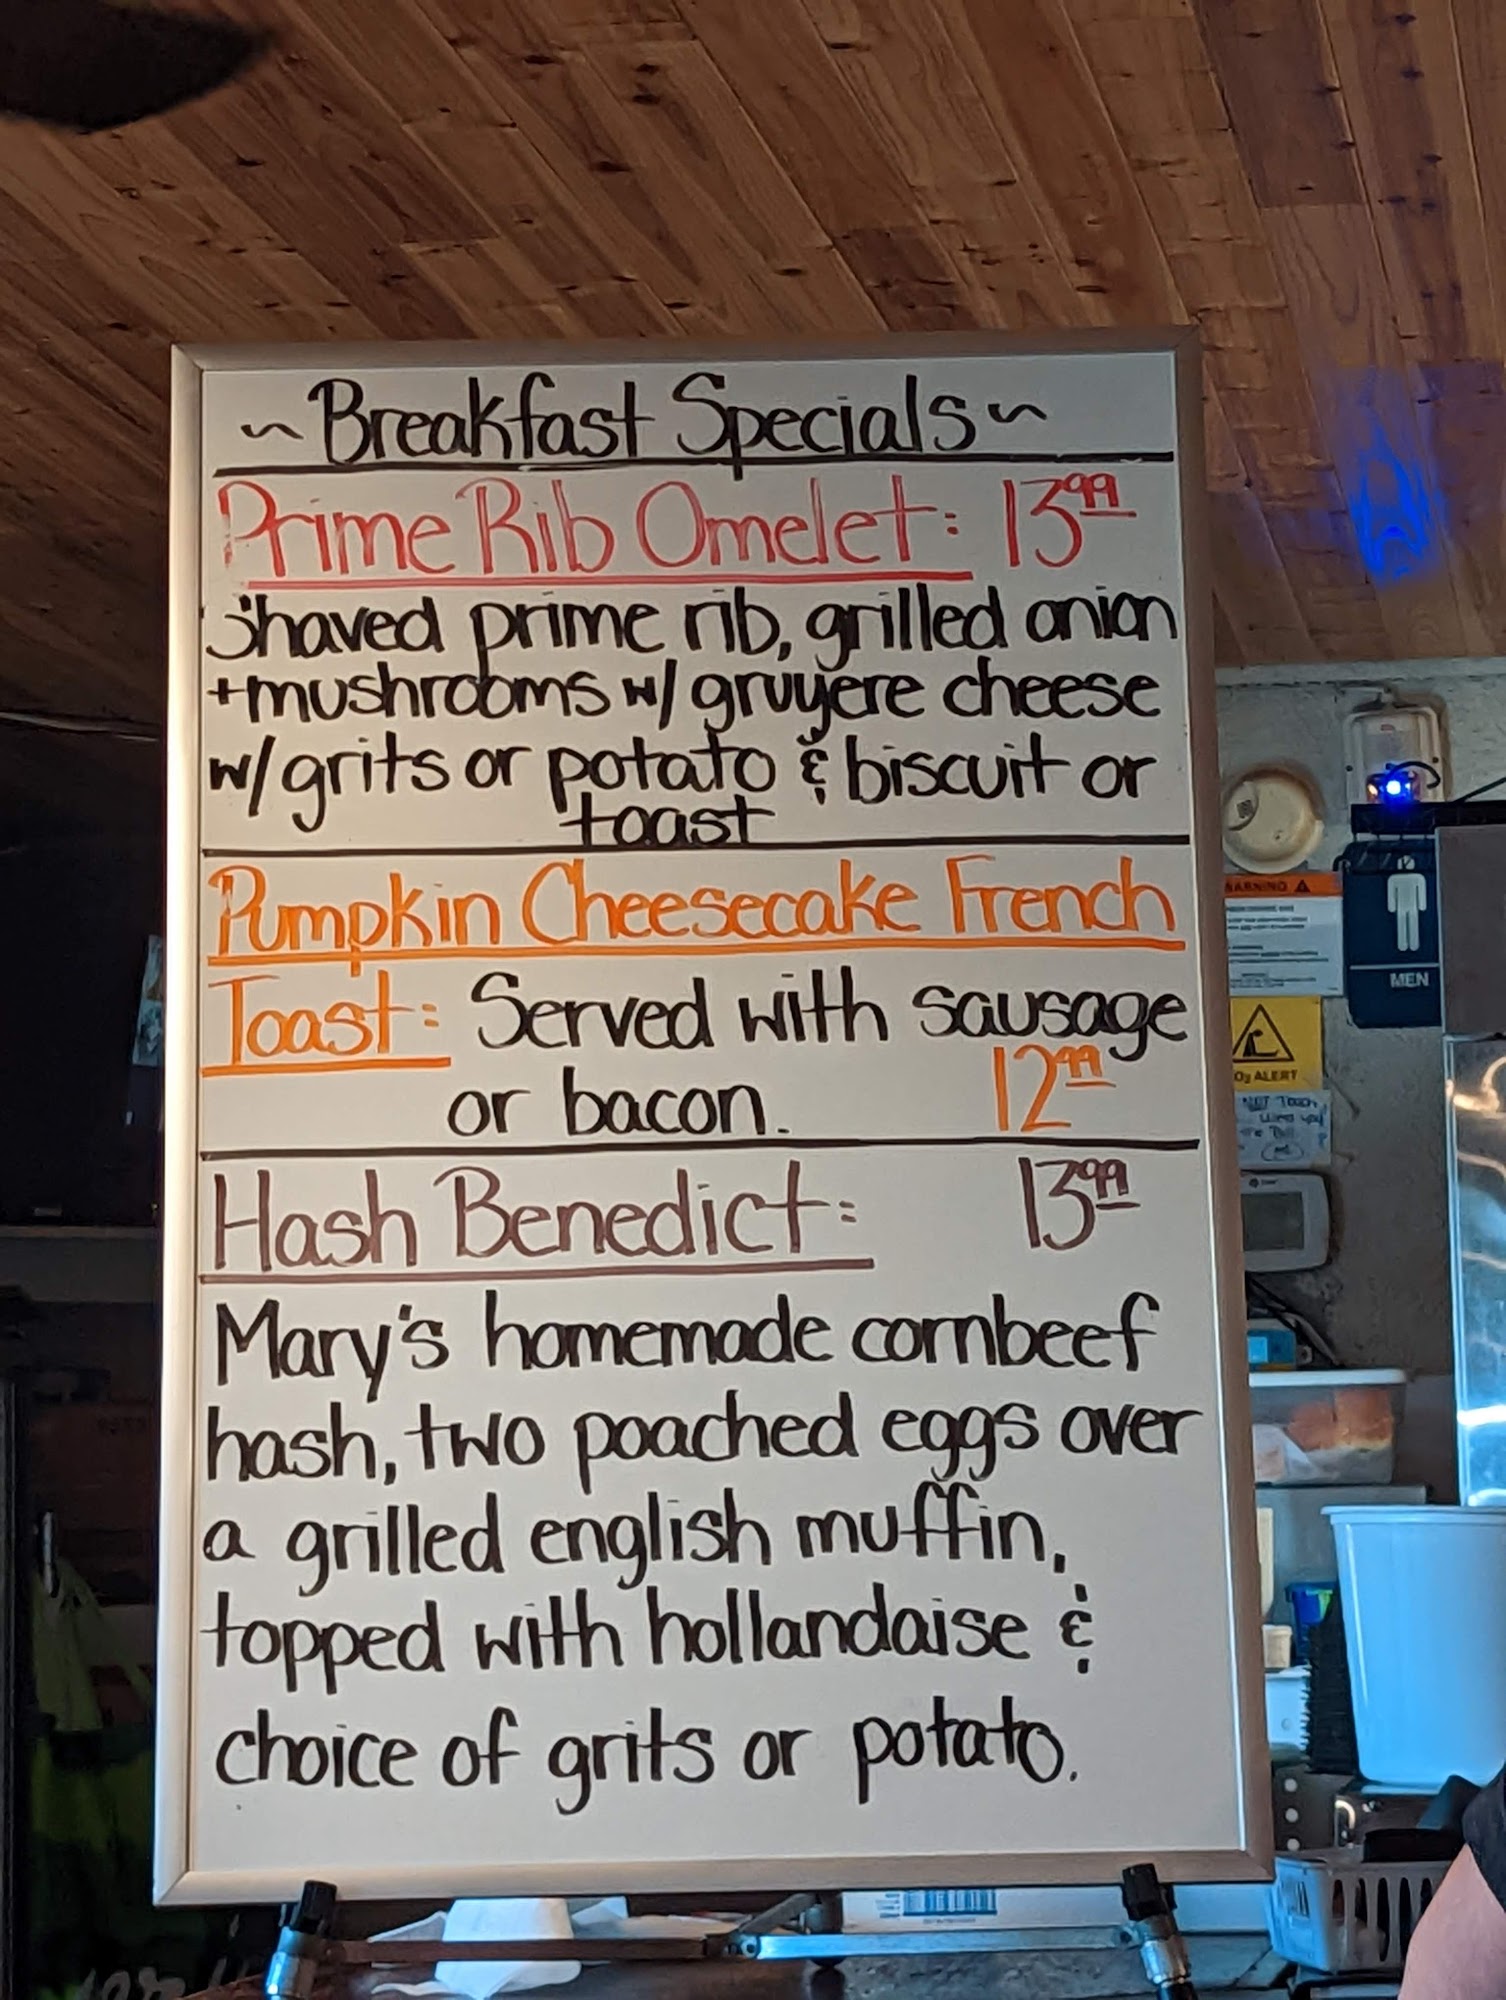 ~Breakfast Specials~
Prime Rib Omelet: 13.99
Shaved prime rib, grilled onion
+mushrooms w/ gruyere cheese
w/ grits or potato & biscuit or
toast
Pumpkin Cheesecake French
Toast: Served with sausage
or bacon. 12.99
Hash Benedict: 13.99
Mary's homemade cornbeef
hash, two poached eggs over
a grilled english muffin,
topped with hollandaise &
choice of grits or potato.
WARNING
MEN
ALERT